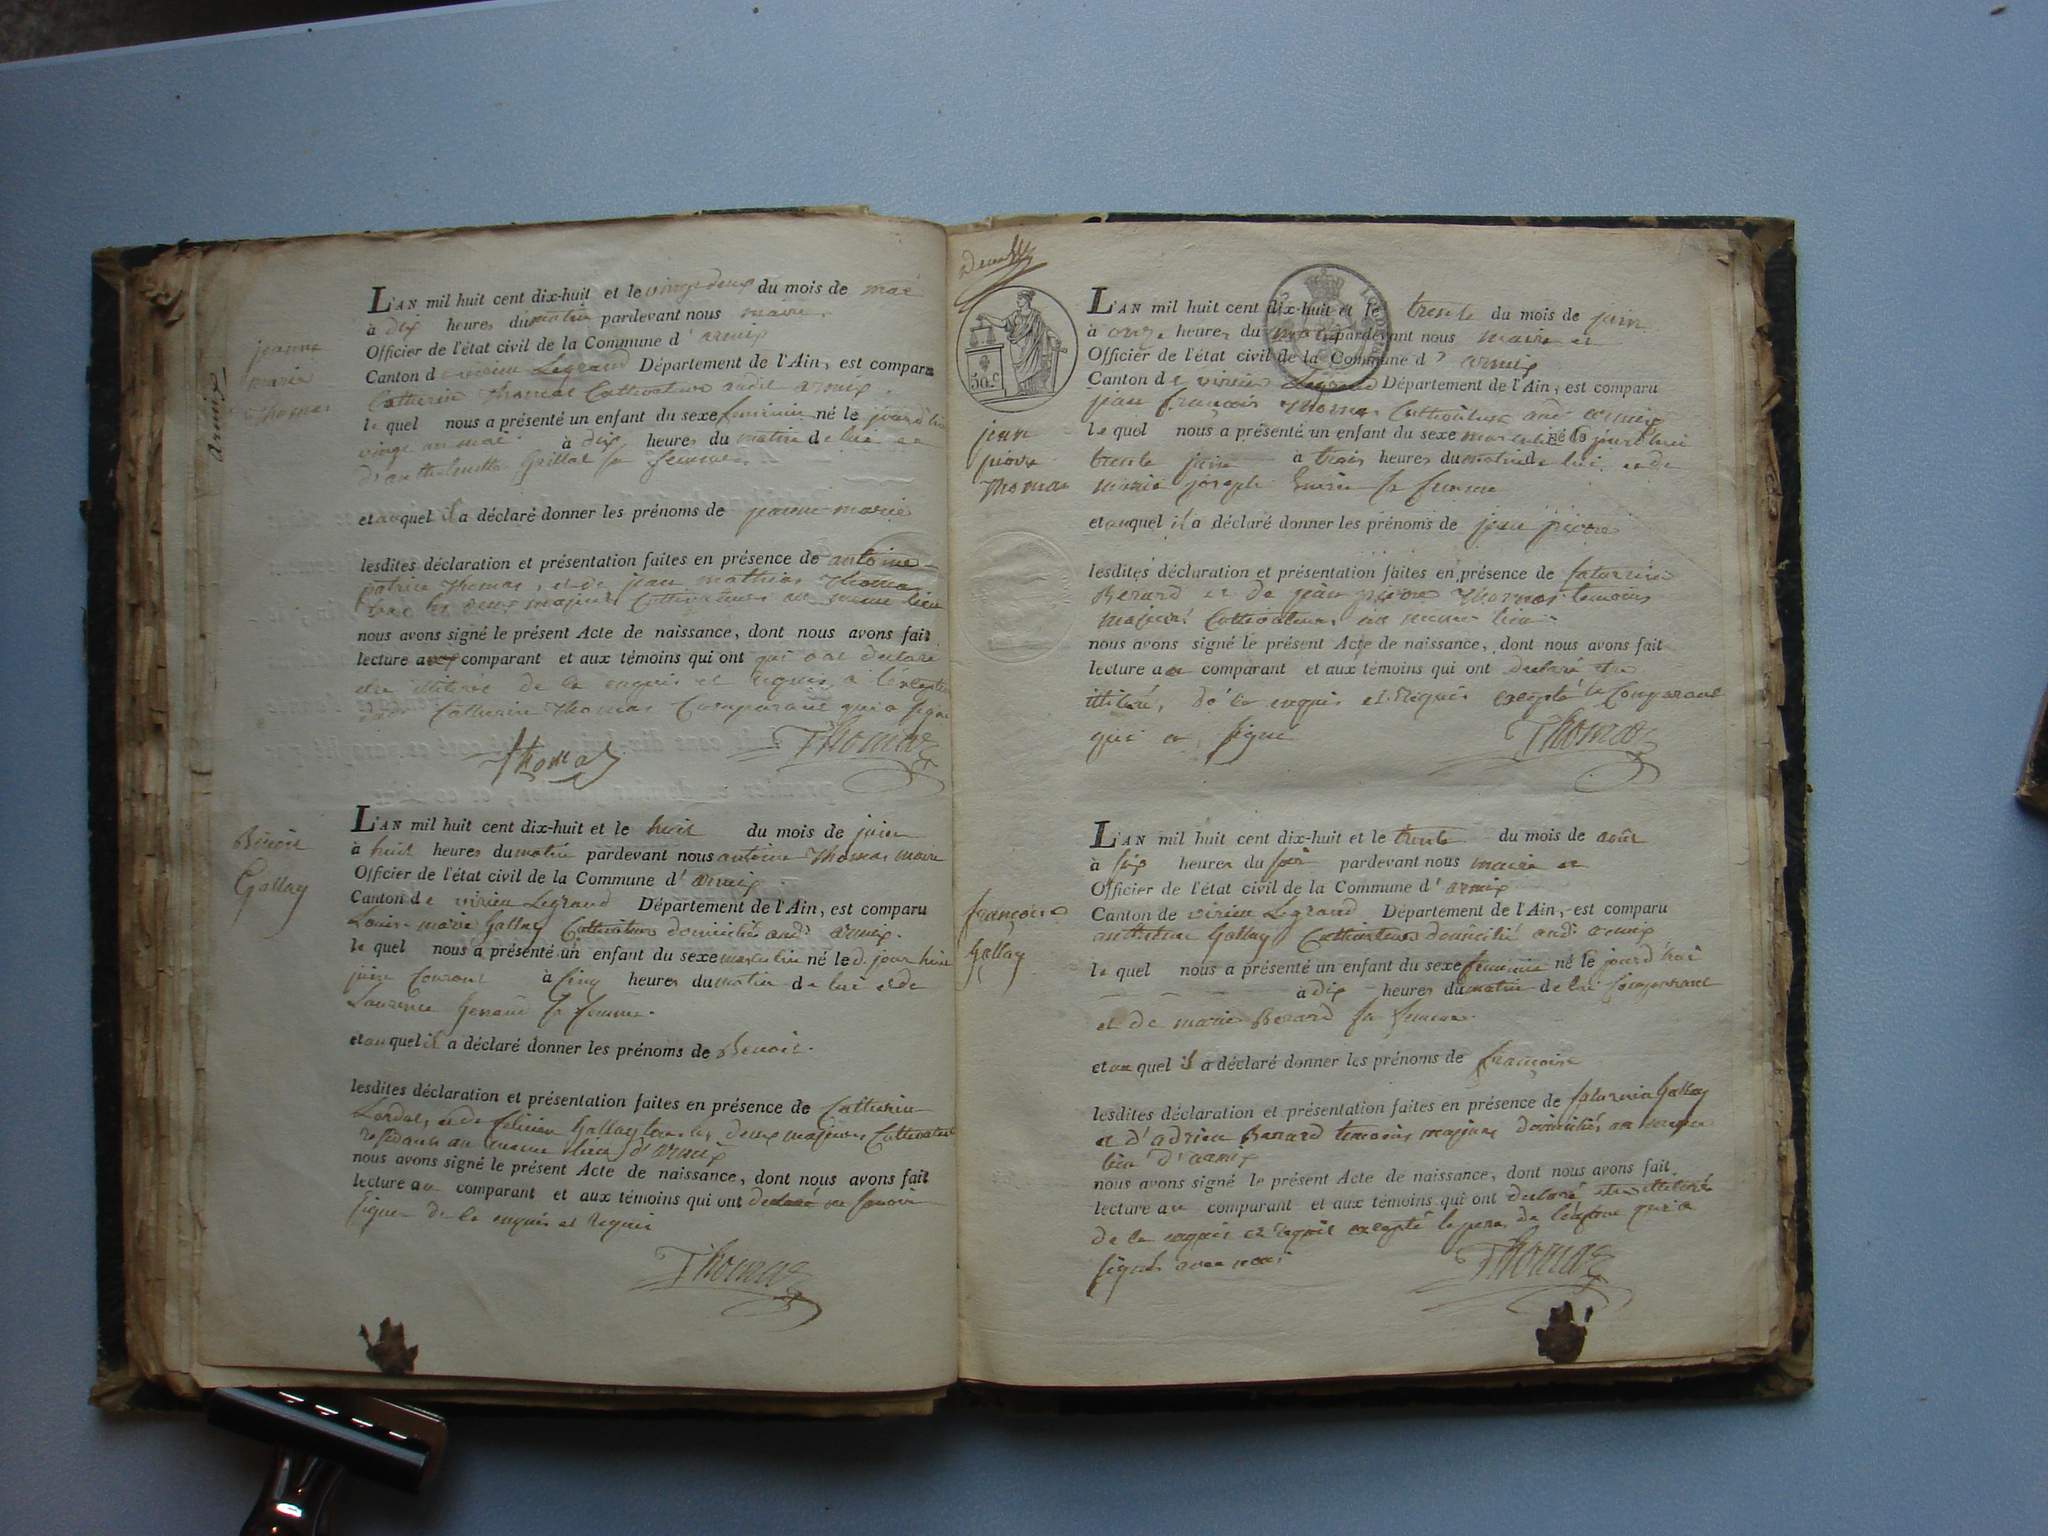 Armix
jeanne
marie
Thomas
L'AN mil huit cent dix-huit et le vingt deux du mois de mai
à dix heures du matin pardevant nous maire
Officier de l'état civil de la Commune d' armix
Canton de virieu Legrand Département de l'Ain, est comparu
Catherin Thomas Cultivateur audit armix
le quel nous a présenté un enfant du sexe feminin né le jourd'hui
vingt mai à dix heures du matin de lui et
d'anthelmette Grillat sa femme
et auquel il a déclaré donner les prénoms de jeanne marie
lesdites déclaration et présentation faites en présence de antoine
patrice Thomas, et de jean mathias Thomas
tous les deux majeurs Cultivateurs au meme lieu
nous avons signé le présent Acte de naissance, dont nous avons fait
lecture aux comparant et aux témoins qui ont qui ont declaré
etre illitéré de ce enquis et requis a l'exception
Catherin Thomas Comparant qui a signé
Thomas Thomas
Benoit
Gallay
L'AN mil huit cent dix-huit et le huit du mois de juin
à huit heures du matin pardevant nous antoine Thomas maire
Officier de l'état civil de la Commune d' armix
Canton de virieu Legrand Département de l'Ain, est comparu
Louis marie Gallay Cultivateur domicilié aud. armix.
le quel nous a présenté un enfant du sexe masculin né le d. jour huit
juin Courant à Cinq heures du matin de lui et de
Laurence sa femme.
et auquel il a déclaré donner les prénoms de Benoit.
lesdites déclaration et présentation faites en présence de Catherin
et de felicien Gallay tous les deux majeurs Cultivateurs
residants au meme lieu d'armix
nous avons signé le présent Acte de naissance, dont nous avons fait
lecture au comparant et aux témoins qui ont declaré ne savoir
signer de ce enquis et requis
Thomas
50 c
jean
pierre
Thomas
L'AN mil huit cent dix-huit et le trente du mois de juin
à onze heures du matin pardevant nous maire et
Officier de l'état civil de la Commune d' armix
Canton de virieu Legrand Département de l'Ain, est comparu
jean françois Thomas Cultivateur aud. armix
le quel nous a présenté un enfant du sexe masculin né le jourd'hui
trente juin à trois heures du matin de lui et de
marie joseph sa femme
et auquel il a déclaré donner les prénoms de jean pierre
lesdites déclaration et présentation faites en présence de saturnin
Berard et de jean pierre Thomas temoins
majeurs Cultivateurs au meme lieu
nous avons signé le présent Acte de naissance, dont nous avons fait
lecture au comparant et aux témoins qui ont declaré etre
illitéré, de ce enquis et requis excepté le Comparant
qui a signé Thomas
françoise
Gallay
L'AN mil huit cent dix-huit et le trente du mois de août
à six heures du soir pardevant nous maire et
Officier de l'état civil de la Commune d' armix
Canton de virieu Legrand Département de l'Ain, est comparu
anthelme Gallay Cultivateur domicilié aud. armix
le quel nous a présenté un enfant du sexe feminin né le jourd'hui
à dix heures du matin de lui Comparant
et de marie Berard sa femme.
et au quel il a déclaré donner les prénoms de françoise
lesdites déclaration et présentation faites en présence de saturnin Gallay
et d'adrien Berard temoins majeurs domiciliés au meme
lieu d'armix
nous avons signé le présent Acte de naissance, dont nous avons fait
lecture au comparant et aux témoins qui ont declaré etre illitéré
de ce enquis et requis excepté le pere de l'enfant qui a
signé avec nous Thomas